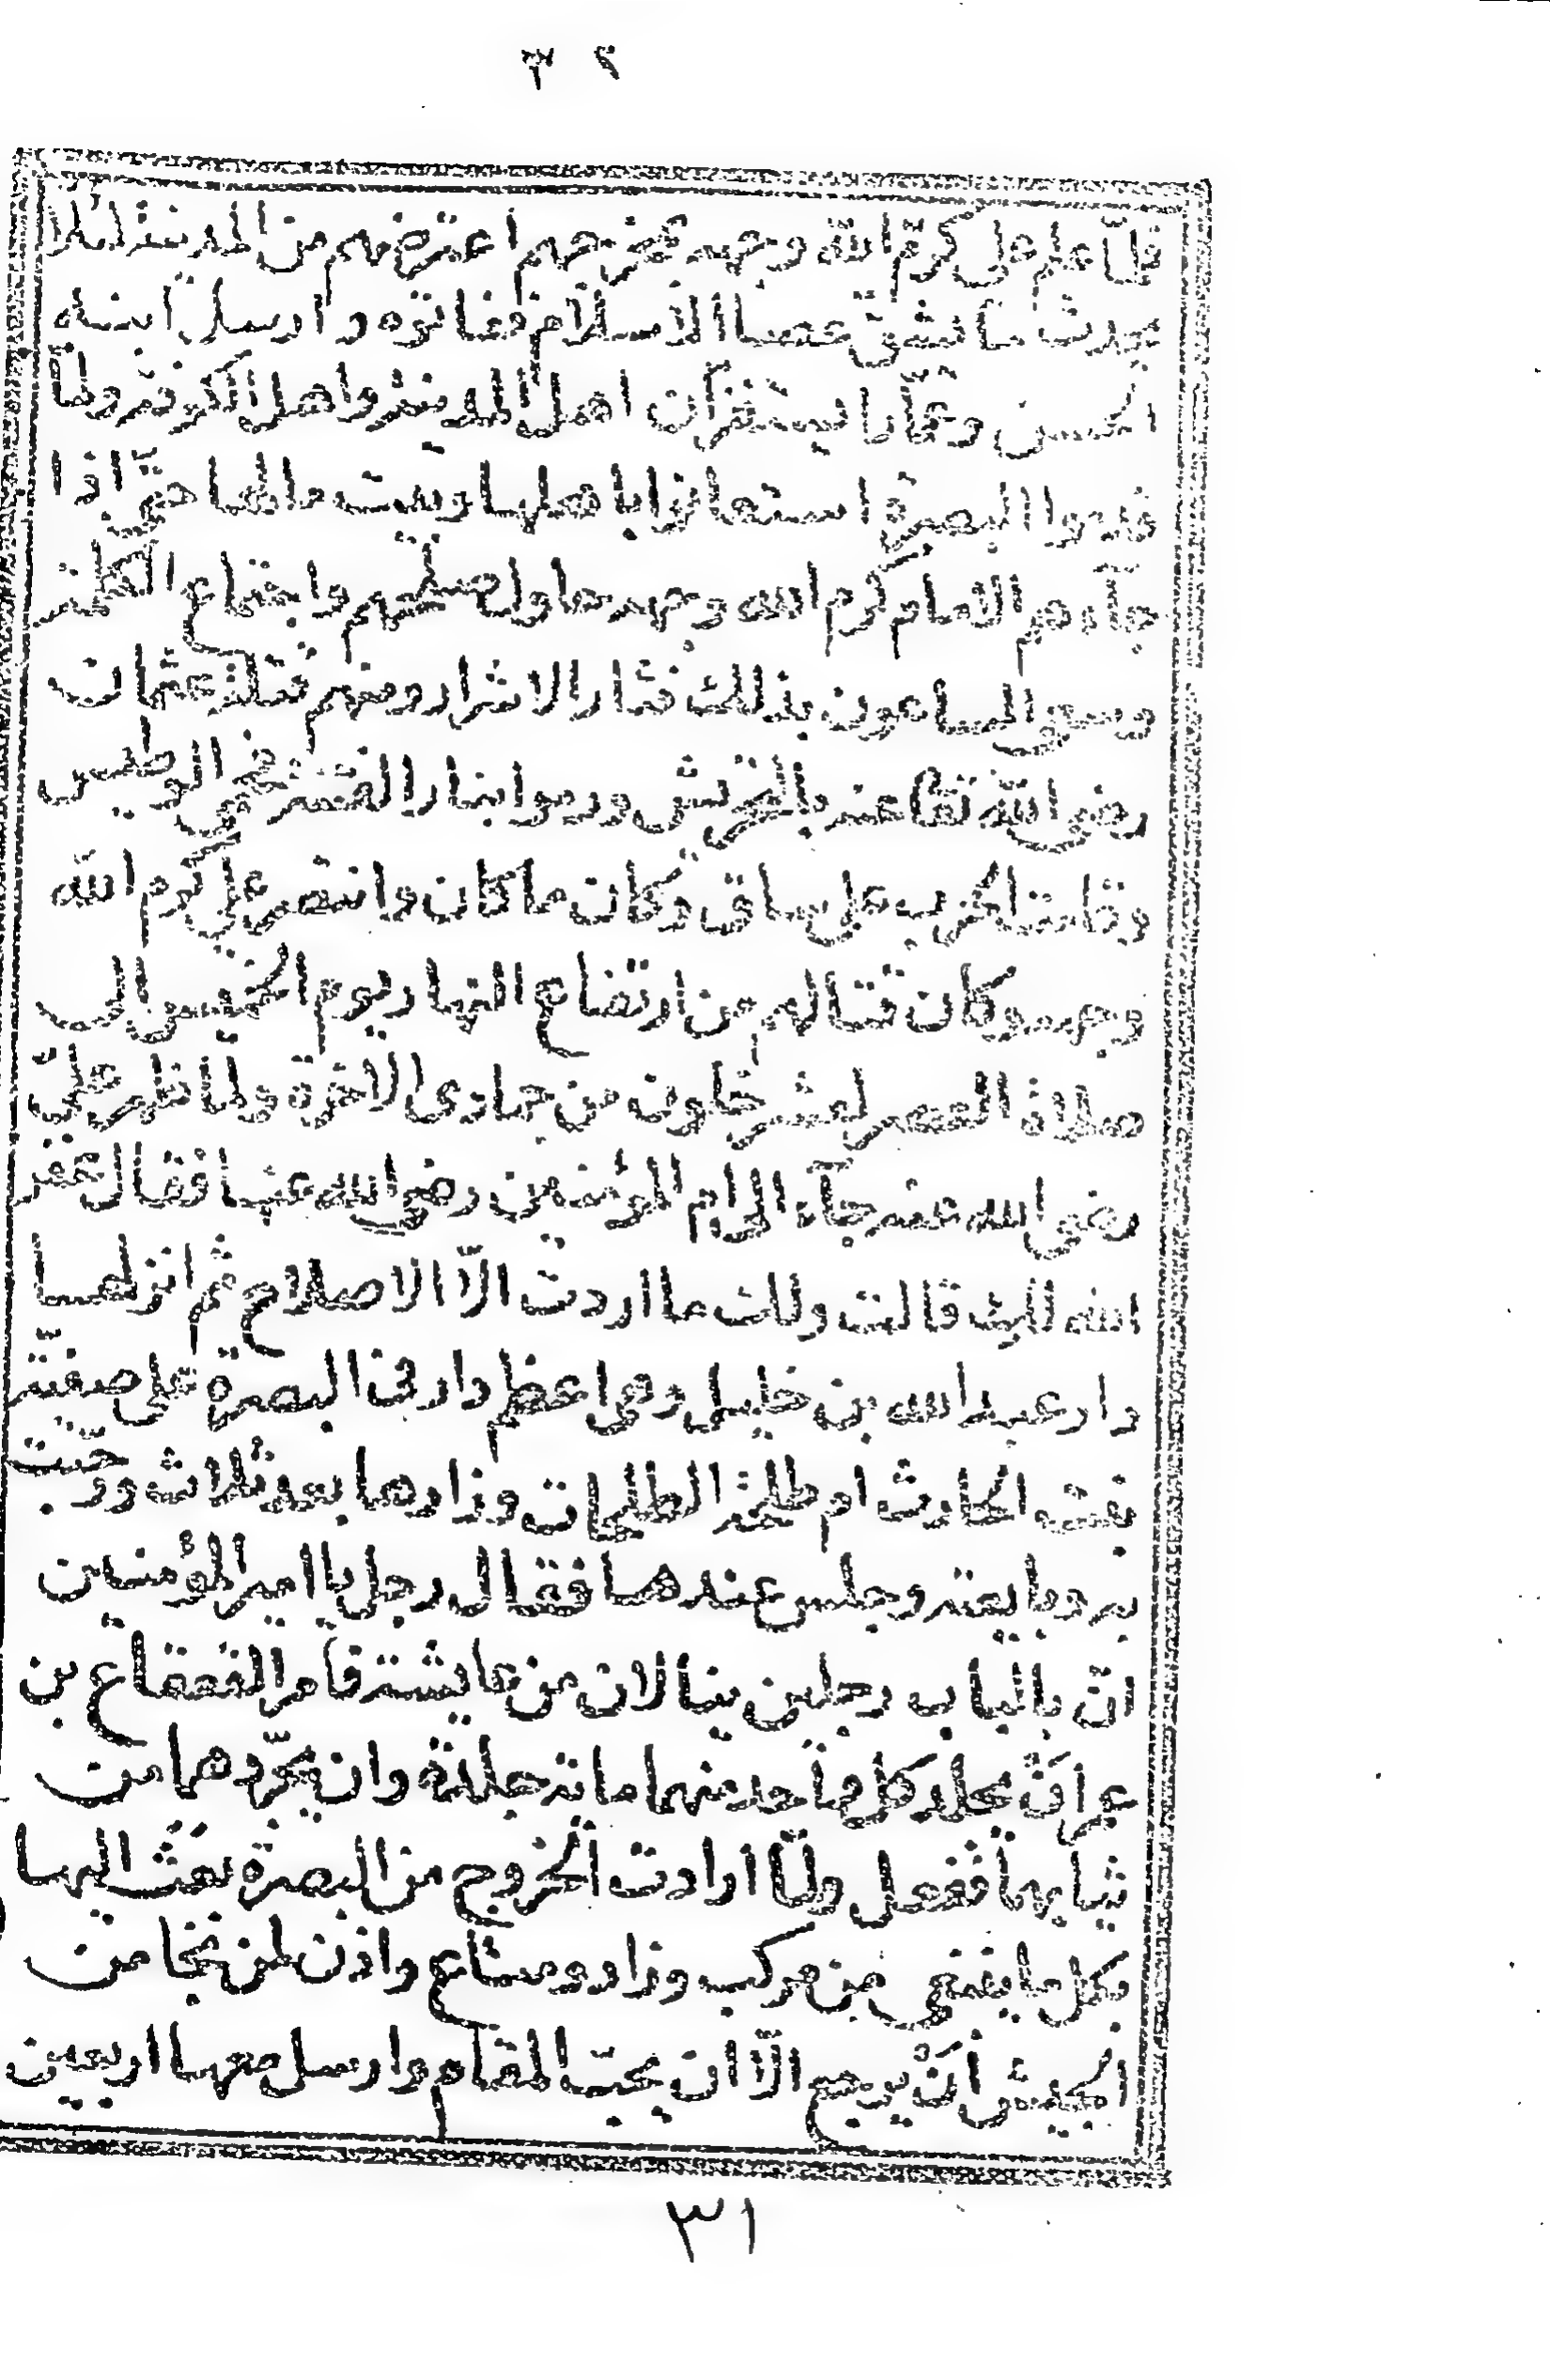 ٣٠
فلمّا علم على كرّم الله وجهه مخرجهم اعترضهم من المدينة لئلا
يحدث ما يشق عصا الاسلام ففاتوه وارسل ابنه
الحسن وعمّارا يستنفران اهل المدينة واهل الكوفة ولما
قدموا البصرة استعانوا باهلها وبيت مالها حتى اذا
جآءهم الامام كرم الله وجهه حاول صلحهم واجتماع الكلمة
وسعى الساعون بذلك فثار الاشرار ومنهم قتلة عثمان
رضى الله تعالى عنه بالتحريش ورموا بنار الفتنة فحمى الوطيس
وقامت الحرب على ساق وكان ما كان وانتصر على كرم الله
وجهه وكان قتالهم من ارتفاع النهار يوم الخميس الى
صلاة العصر لعشر خلون من جمادى الاخرة ولما ظهر علىّ
رضى الله عنه جآء الى ام المؤمنين رضى الله عنها فقال غفر
الله لك قالت ولك ما اردت الّا الاصلاح ثم انزلها
دار عبد الله بن خليل وهى اعظم دار فى البصرة على صفيّة
بنت الحارث ام طلحة الطلحات وزارها بعد ثلاث ورحّبت
به وبايعته وجلس عندها فقال رجل يا امير المؤمنين
انّ بالباب رجلين ينالان من عايشة فامر القعقاع بن
عمر انْ يجلد كل واحد منهما مائة جلدة وان يجرّدهما من
ثيابهما ففعل ولمّا ارادت الخروج من البصرة بعَث اليها
بكل ما ينبغى من مركب وزاد ومتاع واذن لمن نجا من
الجيش اَنْ يرجع الّا ان يحبّ المقام وارسل معها اربعين
٣١